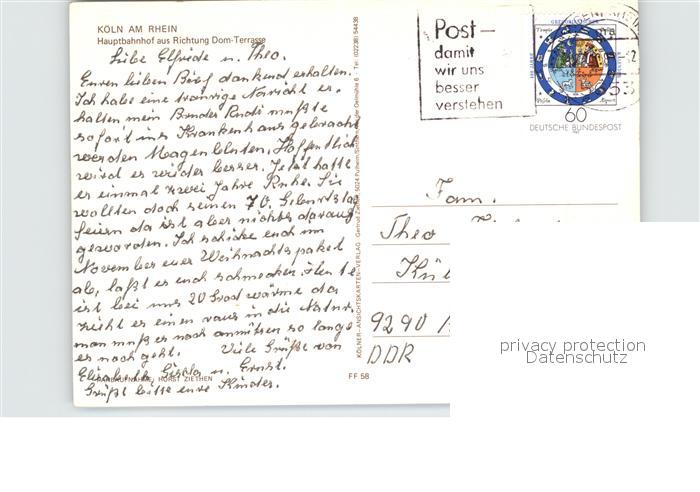 KÖLN AM RHEIN
Hauptbahnhof aus Richtung Dom-Terrasse
Liebe Elfriede u. Theo.
Euren lieben Brief dankend erhalten.
Ich habe eine traurige Nachricht er-
halten mein Bruder Rudi mußte
sofort ins Krankenhaus gebracht
werden Magenbluten. Hoffentlich
wird es wieder besser. Jetzt hatte
er einmal zwei Jahre Ruhe. Sie
wollten doch seinen 70. Geburtstag
feiern da ist aber nichts daraus
geworden. Ich schicke euch im
November euer Weihnachtspaket
ab, laßt es euch schmecken. Heute
ist bei uns 20 Grad wärme da
zieht es einen raus in die Natur.
man muß es noch ausnützen so lange
es noch geht. Viele Grüße von
Elisabeth, Gisela u. Ernst.
Grüßt bitte eure Kinder.
FARBAUFNAHME: HORST ZIETHEN
FF 58
KÖLNER-ANSICHTSKARTEN-VERLAG
Tel. (02238) 54438
Post –
damit
wir uns
besser
verstehen
60
DEUTSCHE BUNDESPOST
Fam.
Theo
9290
DDR
privacy protection
Datenschutz